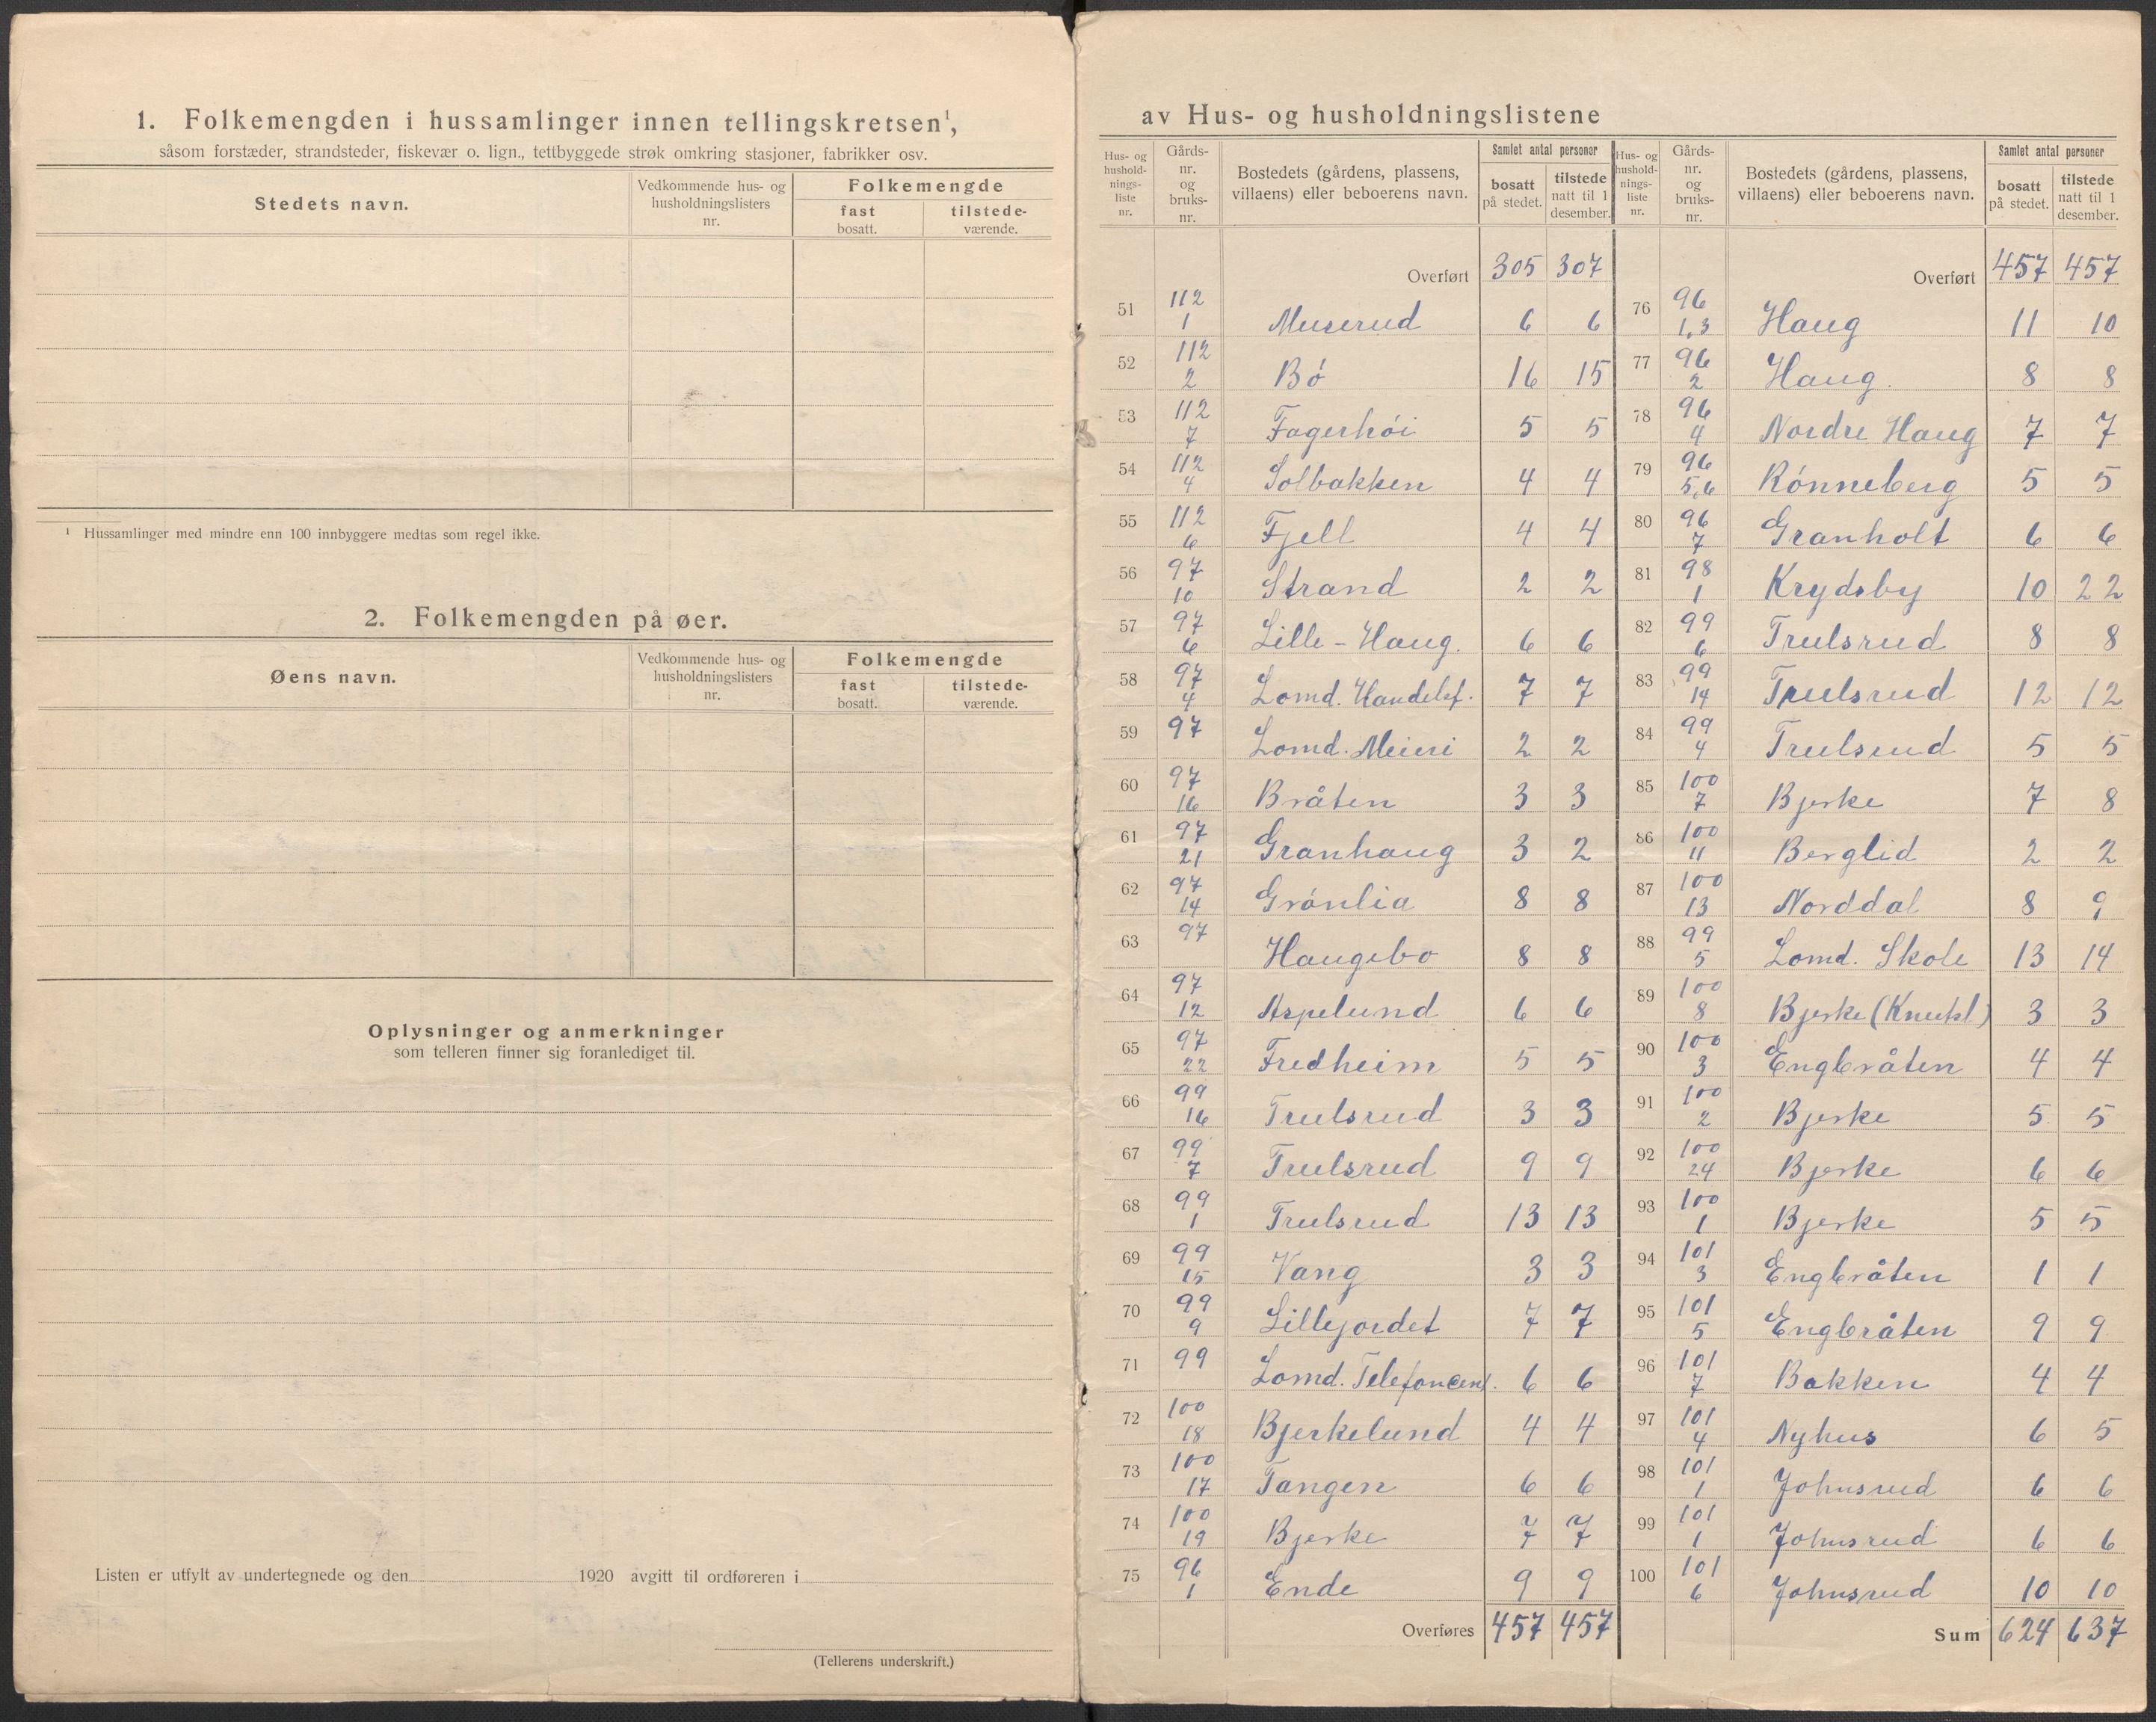 1. Folkemengden i hussamlinger innen tellingskretsen¹,
såsom forstæder, strandsteder, fiskevær o. lign., tettbyggede strøk omkring stasjoner, fabrikker osv.
Stedets navn.
Vedkommende hus- og husholdningslisters nr.
Folkemengde
fast bosatt.
tilstede-værende.
¹ Hussamlinger med mindre enn 100 innbyggere medtas som regel ikke.
2. Folkemengden på øer.
Øens navn.
Vedkommende hus- og husholdningslisters nr.
Folkemengde
fast bosatt.
tilstede-værende.
Oplysninger og anmerkninger
som telleren finner sig foranlediget til.
Listen er utfylt av undertegnede og den 1920 avgitt til ordføreren i
(Tellerens underskrift.)
av Hus- og husholdningslistene
Hus- og hushold-nings-liste nr.
Gårds-nr. og bruks-nr.
Bostedets (gårdens, plassens, villaens) eller beboerens navn.
Samlet antal personer
bosatt på stedet.
tilstede natt til 1 desember.
Overført 305 307
51 112 1 Muserud 6 6
52 112 2 Bø 16 15
53 112 7 Fagerhøi 5 5
54 112 4 Solbakken 4 4
55 112 6 Fjell 4 4
56 97 10 Strand 2 2
57 97 6 Lille-Haug. 6 6
58 97 4 Lomd. Handelsf. 7 7
59 97 Lomd. Meieri 2 2
60 97 16 Bråten 3 3
61 97 21 Granhaug 3 2
62 97 14 Grønlia 8 8
63 97 Haugebo 8 8
64 97 12 Aspelund 6 6
65 97 22 Fredheim 5 5
66 99 16 Trulsrud 3 3
67 99 7 Trulsrud 9 9
68 99 1 Trulsrud 13 13
69 99 15 Vang 3 3
70 99 9 Lillejordet 7 7
71 99 Lomd. Telefoncent. 6 6
72 100 18 Bjerkelund 4 4
73 100 17 Tangen 6 6
74 100 19 Bjerke 7 7
75 96 1 Ende 9 9
Overføres 457 457
Hus- og hushold-nings-liste nr.
Gårds-nr. og bruks-nr.
Bostedets (gårdens, plassens, villaens) eller beboerens navn.
Samlet antal personer
bosatt på stedet.
tilstede natt til 1 desember.
Overført 457 457
76 96 1,3 Haug 11 10
77 96 2 Haug. 8 8
78 96 4 Nordre Haug 7 7
79 96 5,6 Rønneberg 5 5
80 96 7 Granholt 6 6
81 98 1 Krydsby 10 22
82 99 6 Trulsrud 8 8
83 99 14 Trulsrud 12 12
84 99 4 Trulsrud 5 5
85 100 7 Bjerke 7 8
86 100 11 Berglid 2 2
87 100 13 Norddal 8 9
88 99 5 Lomd. Skole 13 14
89 100 8 Bjerke 3 3
90 100 3 Engbråten 4 4
91 100 2 Bjerke 5 5
92 100 24 Bjerke 6 6
93 100 1 Bjerke 5 5
94 101 3 Engbråten 1 1
95 101 5 Engbråten 9 9
96 101 7 Bakken 4 4
97 101 4 Nyhus 6 5
98 101 1 Johnsrud 6 6
99 101 1 Johnsrud 6 6
100 101 6 Johnsrud 10 10
Sum 624 637